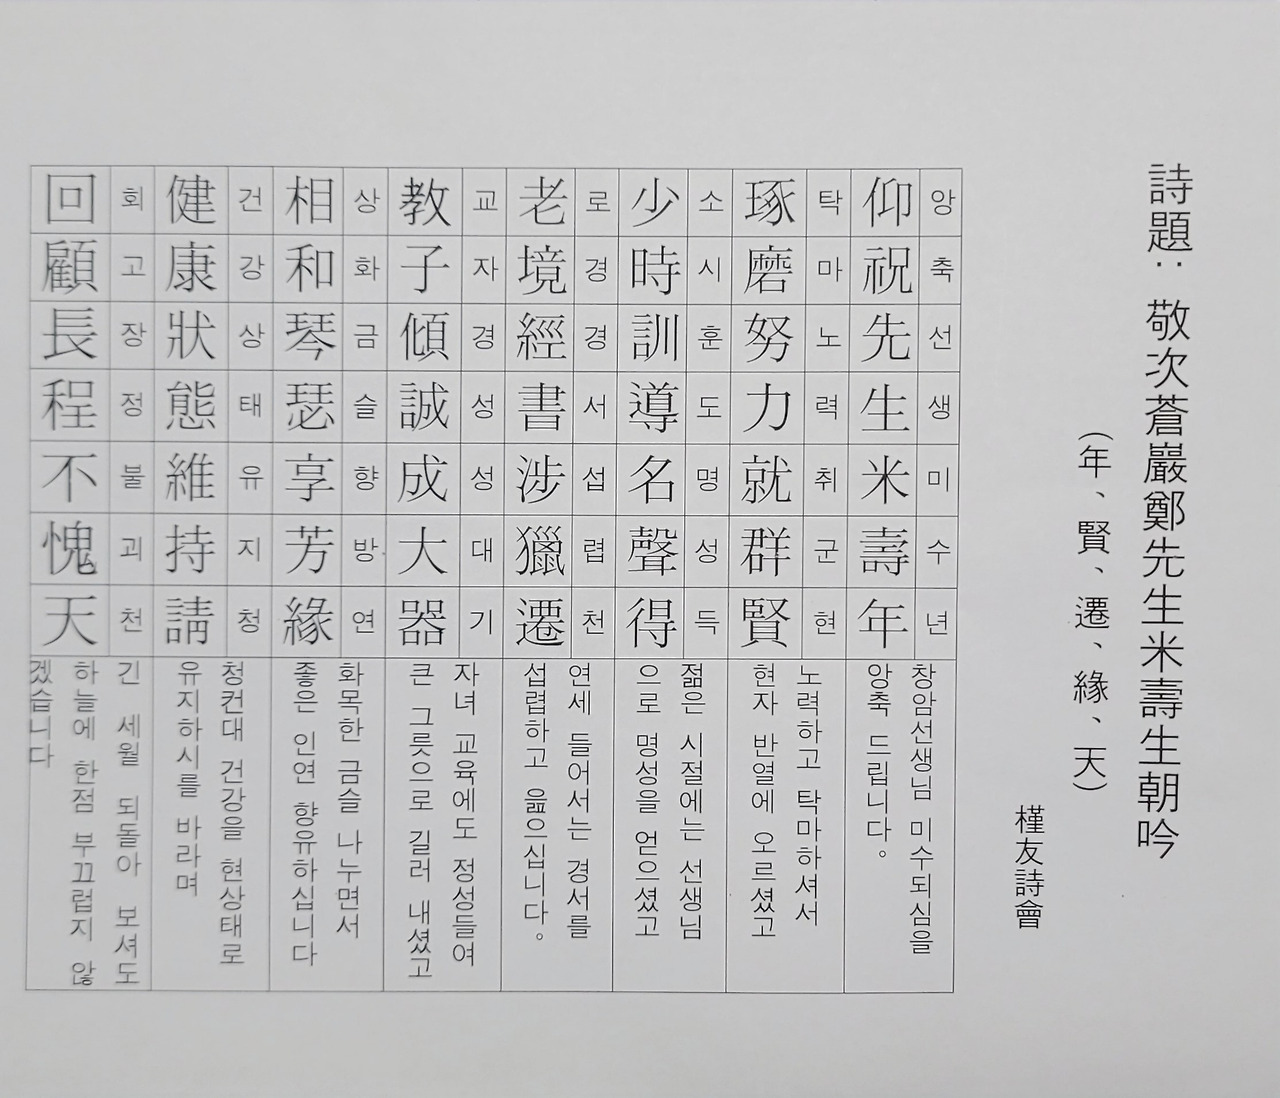 詩題: 敬次蒼巖鄭先生米壽生朝吟
(年、賢、遷、緣、天)
槿友詩會
앙축선생미수년
仰祝先生米壽年
창암선생님 미수되심을
앙축 드립니다.
탁마노력취군현
琢磨努力就群賢
노력하고 탁마하셔서
현자 반열에 오르셨고
소시훈도명성득
少時訓導名聲得
젊은 시절에는 선생님
으로 명성을 얻으셨고
로경경서섭렵천
老境經書涉獵遷
연세 들어서는 경서를
섭렵하고 읊으십니다.
교자경성성대기
教子傾誠成大器
자녀 교육에도 정성들여
큰 그릇으로 길러 내셨고
상화금슬향방연
相和琴瑟享芳緣
화목한 금슬 나누면서
좋은 인연 향유하십니다
건강상태유지청
健康狀態維持請
청컨대 건강을 현상태로
유지하시를 바라며
회고장정불괴천
回顧長程不愧天
긴 세월 되돌아 보셔도
하늘에 한점 부끄럽지 않
겠습니다